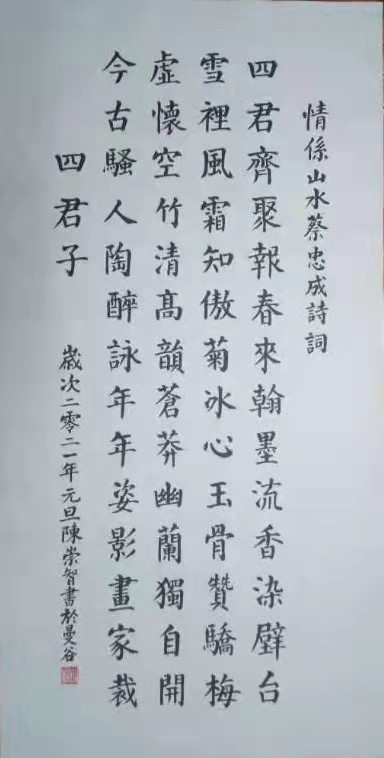 情係山水蔡忠成詩詞
四君齊聚報春來翰墨流香染壁台
雪裡風霜知傲菊冰心玉骨贊驕梅
虛懷空竹清高韻蒼莽幽蘭獨自開
今古騷人陶醉詠年年姿影畫家裁
四君子
歲次二零二一年元旦陳崇智書於曼谷